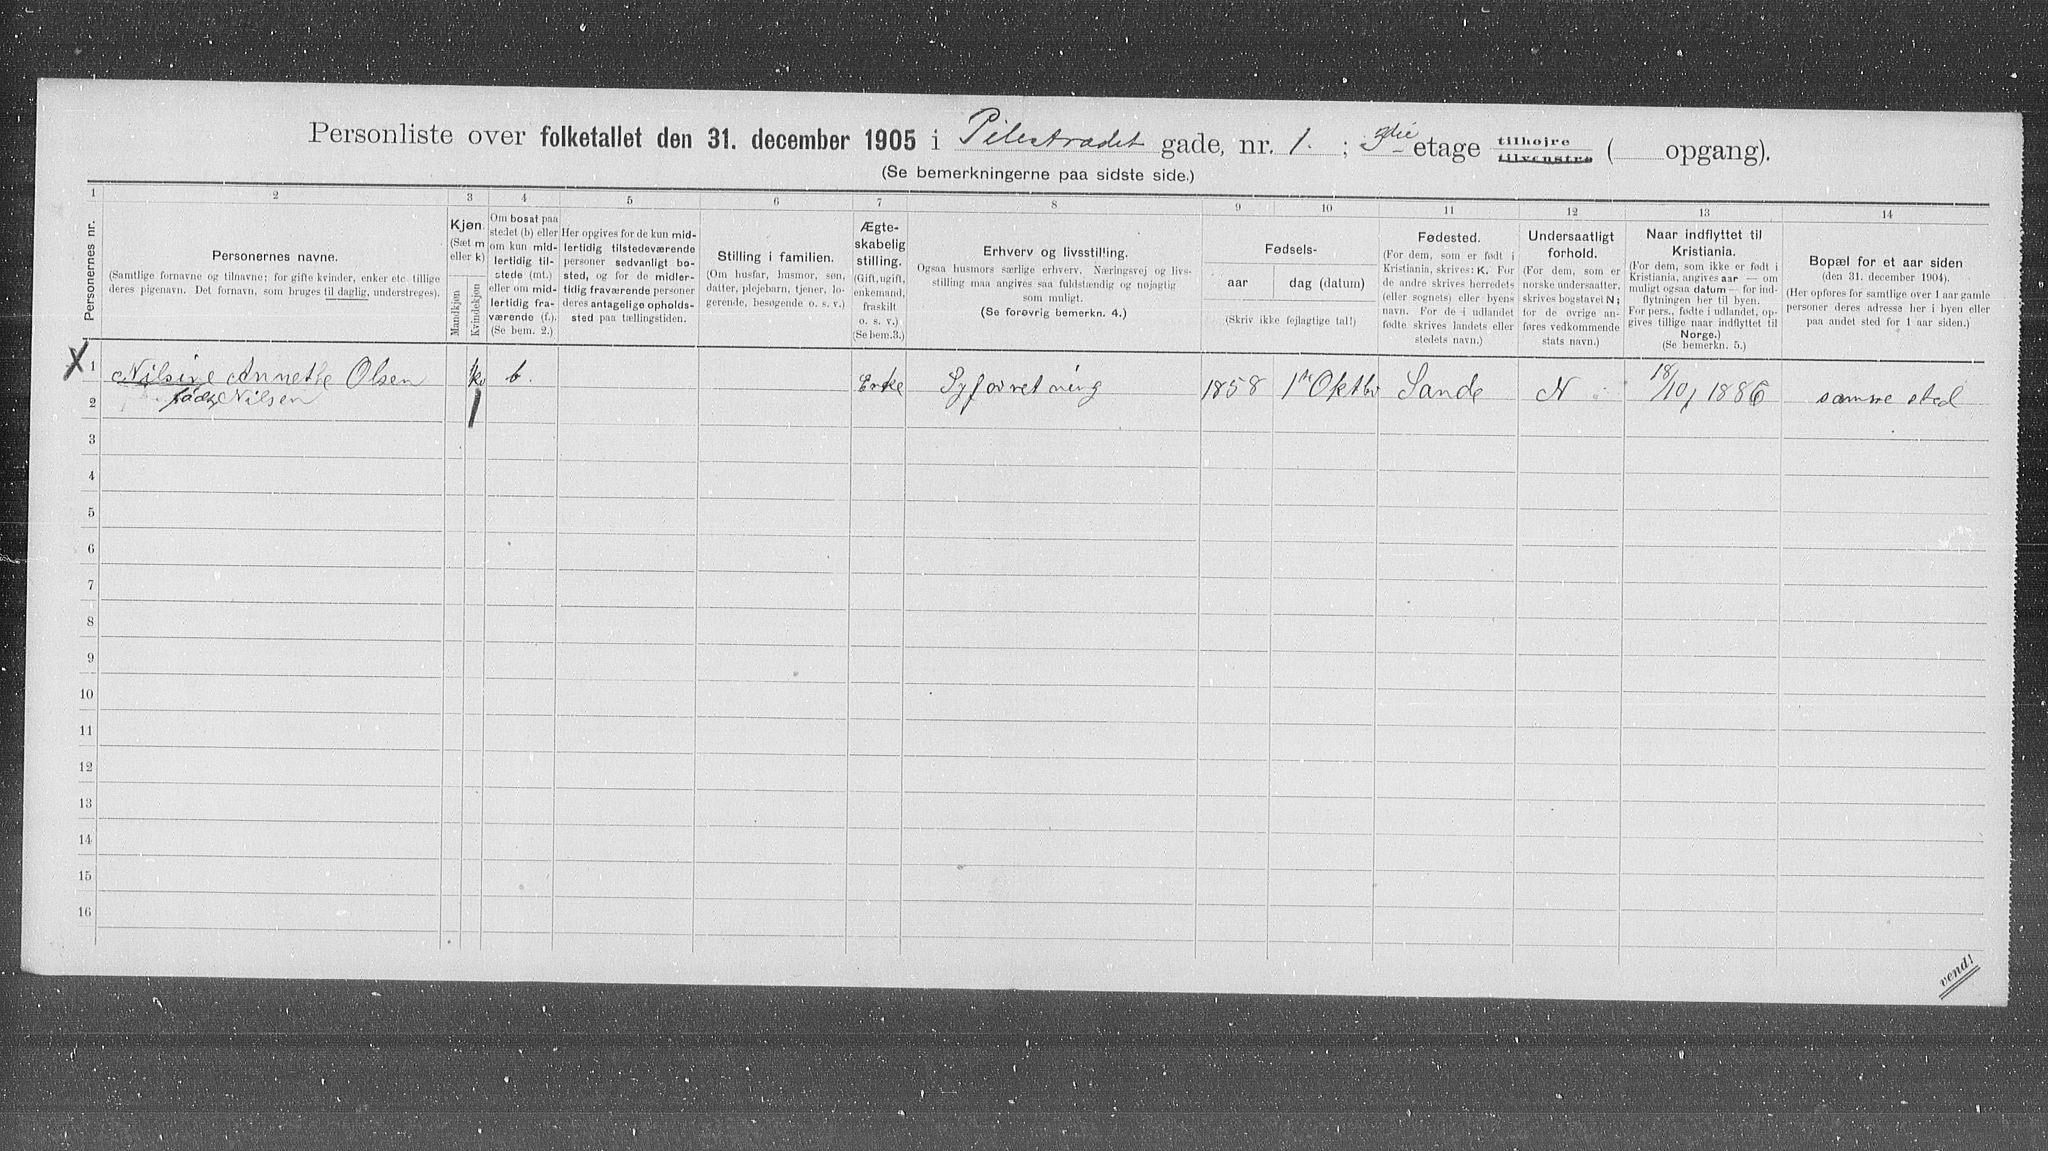 Personliste over folketallet den 31. december 1905 i Pilestrædet gade, nr. 1. ; 3die etage tilhøjre tilvenstre ( opgang).
(Se bemerkningerne paa sidste side.)
1 2 3 4 5 6 7 8 9 10 11 12 13 14
Personernes nr.
Personernes navne.
(Samtlige fornavne og tilnavne; for gifte kvinder, enker etc. tillige
deres pigenavn. Det fornavn, som bruges til daglig, understreges).
Kjøn.
(Sæt m
eller k)
Mandkjøn
Kvindekjøn
Om bosat paa
stedet (b) eller
om kun mid-
lertidig til-
stede (mt.)
eller om mid-
lertidig fra-
værende (f.).
(Se bem. 2.)
Her opgives for de kun mid-
lertidig tilstedeværende
personer sedvanligt bo-
sted, og for de midler-
tidig fraværende personer
deres antagelige opholds-
sted paa tællingstiden.
Stilling i familien.
(Om husfar, husmor, søn,
datter, plejebarn, tjener, lo-
gerende, besøgende o. s. v.)
Ægte-
skabelig
stilling.
(Gift, ugift,
enkemand,
fraskilt
o. s. v.)
(Se bem.3.)
Erhverv og livsstilling.
Ogsaa husmors særlige erhverv. Næringsvej og livs-
stilling maa angives saa fuldstændig og nøjagtig
som muligt.
(Se forøvrig bemerkn. 4.)
Fødsels-
aar dag (datum)
(Skriv ikke fejlagtige tal!)
Fødested.
(For dem, som er født i
Kristiania, skrives: K. For
de andre skrives herredets
(eller sognets) eller byens
navn. For de i udlandet
fødte skrives landets eller
stedets navn.)
Undersaatligt
forhold.
(For dem, som er
norske undersaatter,
skrives bogstavet N;
for de øvrige an-
føres vedkommende
stats navn.)
Naar indflyttet til
Kristiania.
(For dem, som ikke er født i
Kristiania, angives aar — om
muligt ogsaa datum — for ind-
flytningen her til byen.
For pers., fødte i udlandet, op-
gives tillige naar indflyttet til
Norge.)
(Se bemerkn. 5.)
Bopæl for et aar siden
(den 31. december 1904).
(Her opføres for samtlige over 1 aar gamle
personer deres adresse her i byen eller
paa andet sted for 1 aar siden.)
X 1 Nilsine Annethe Olsen k b. Enke Syforretning 1858 1ste Oktbr Sande N 18/10 1886 samme sted
2 født Nilsen 1
3
4
5
6
7
8
9
10
11
12
13
14
15
16
vend!